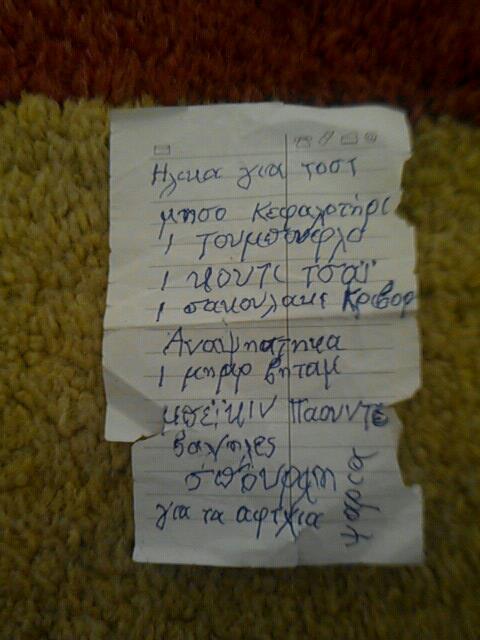 Ηλικα για τοστ
μησο Κεφαλοτήρι
1 τουμπουφλο
1 κουτι τσαϊ
1 σακουλακι Κριθαρ
Αναψηατηκα
1 μηαρ βηταμ
μπεϊκιν Παουντε
βαν'ηλες
σπουργη
για τα αφτχια
ψαρια